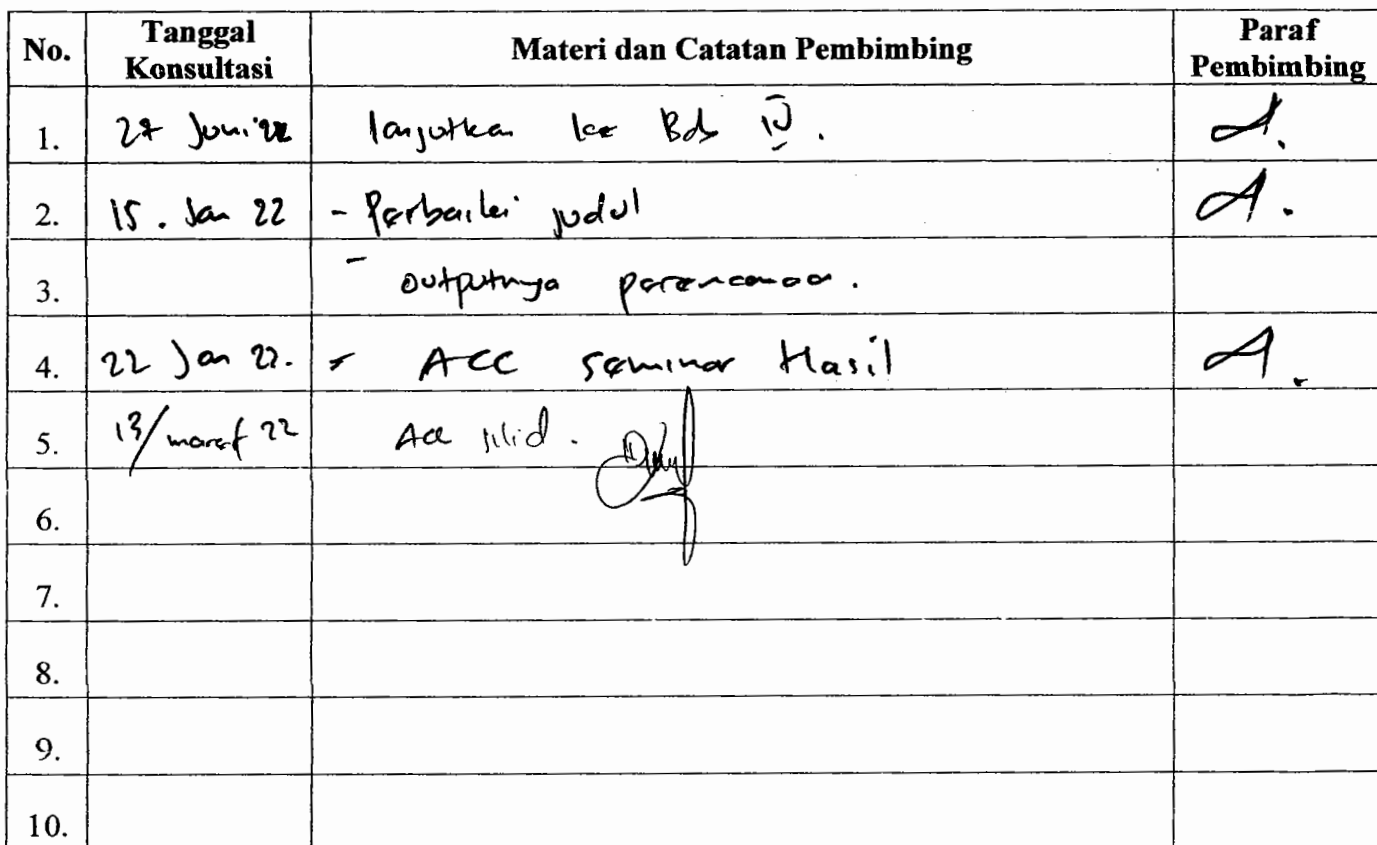 No. Tanggal Konsultasi Materi dan Catatan Pembimbing Paraf Pembimbing
1. 27 Juni 22 lanjutkan ke Bab IV.
2. 15. Jan 22 - Perbaiki judul
3. - outputnya perencanaan.
4. 22 Jan 22. - ACC seminar Hasil
5. 13/maret 22 Acc jilid.
6.
7.
8.
9.
10.